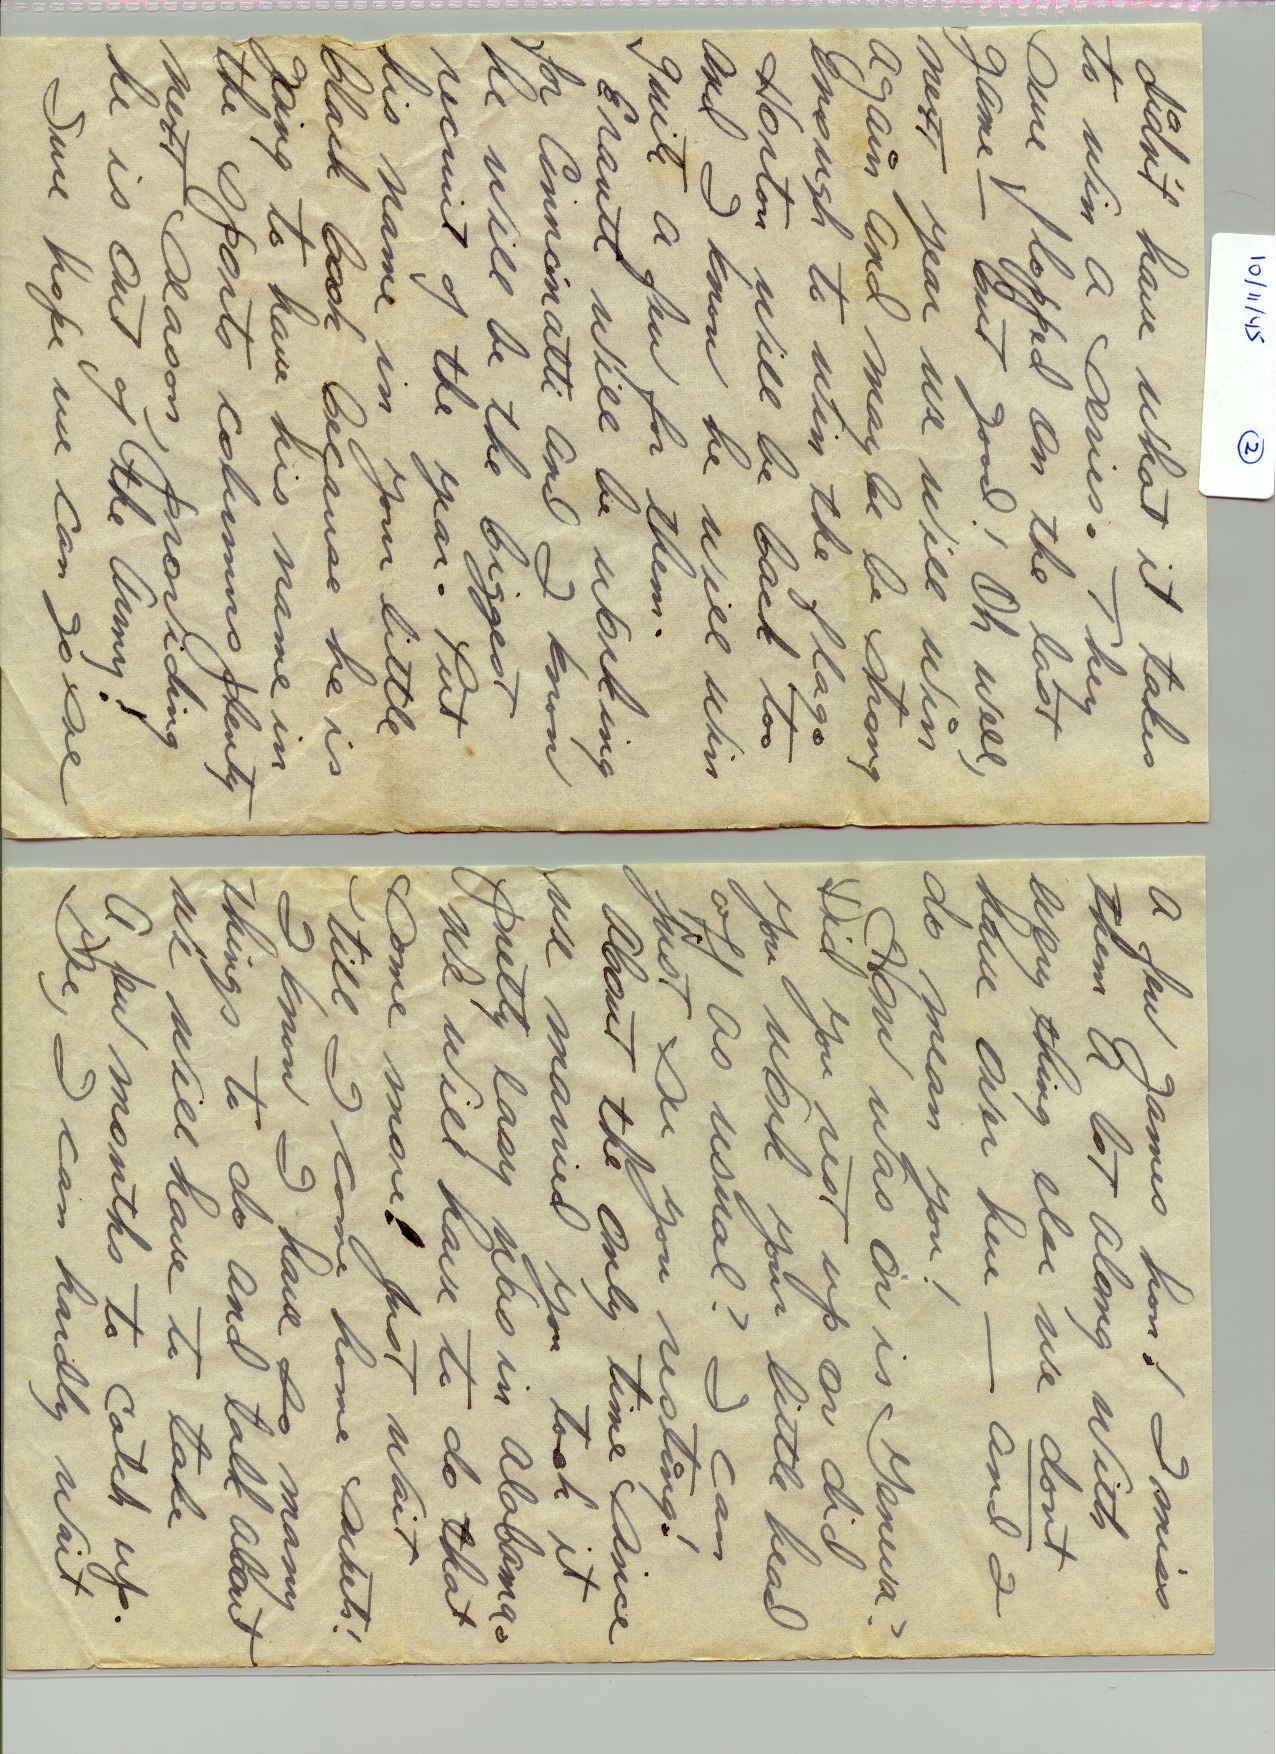 10/11/45 ②
didn't have what it takes
to win a series. They
sure flopped on the last
game — but good! Oh well,
next year we will win
again and may be be strong
enough to win the flag.
Horton will be back too
and I know he will win
quite a few for them.
Erautt will be working
for Cincinatti and I know
he will be the biggest
recruit of the year. Put
his name in your little
black book because he is
going to have his name in
the sports columns plenty
next season, providing
he is out of the Army!
Sure hope we can go see
a few games hon! I miss
them a lot along with
every thing else we don't
have over here — and I
do mean you!
How was or is Geneva?
Did you rest up or did
you work your little head
off as usual? I can
just see you resting!
About the only time since
we married you took it
pretty easy was in Alabama.
We will have to do that
some more! Just wait
'till I come home sweets!
I know I have so many
things to do and talk about
we will have to take
a few months to catch up.
Gee, I can hardly wait